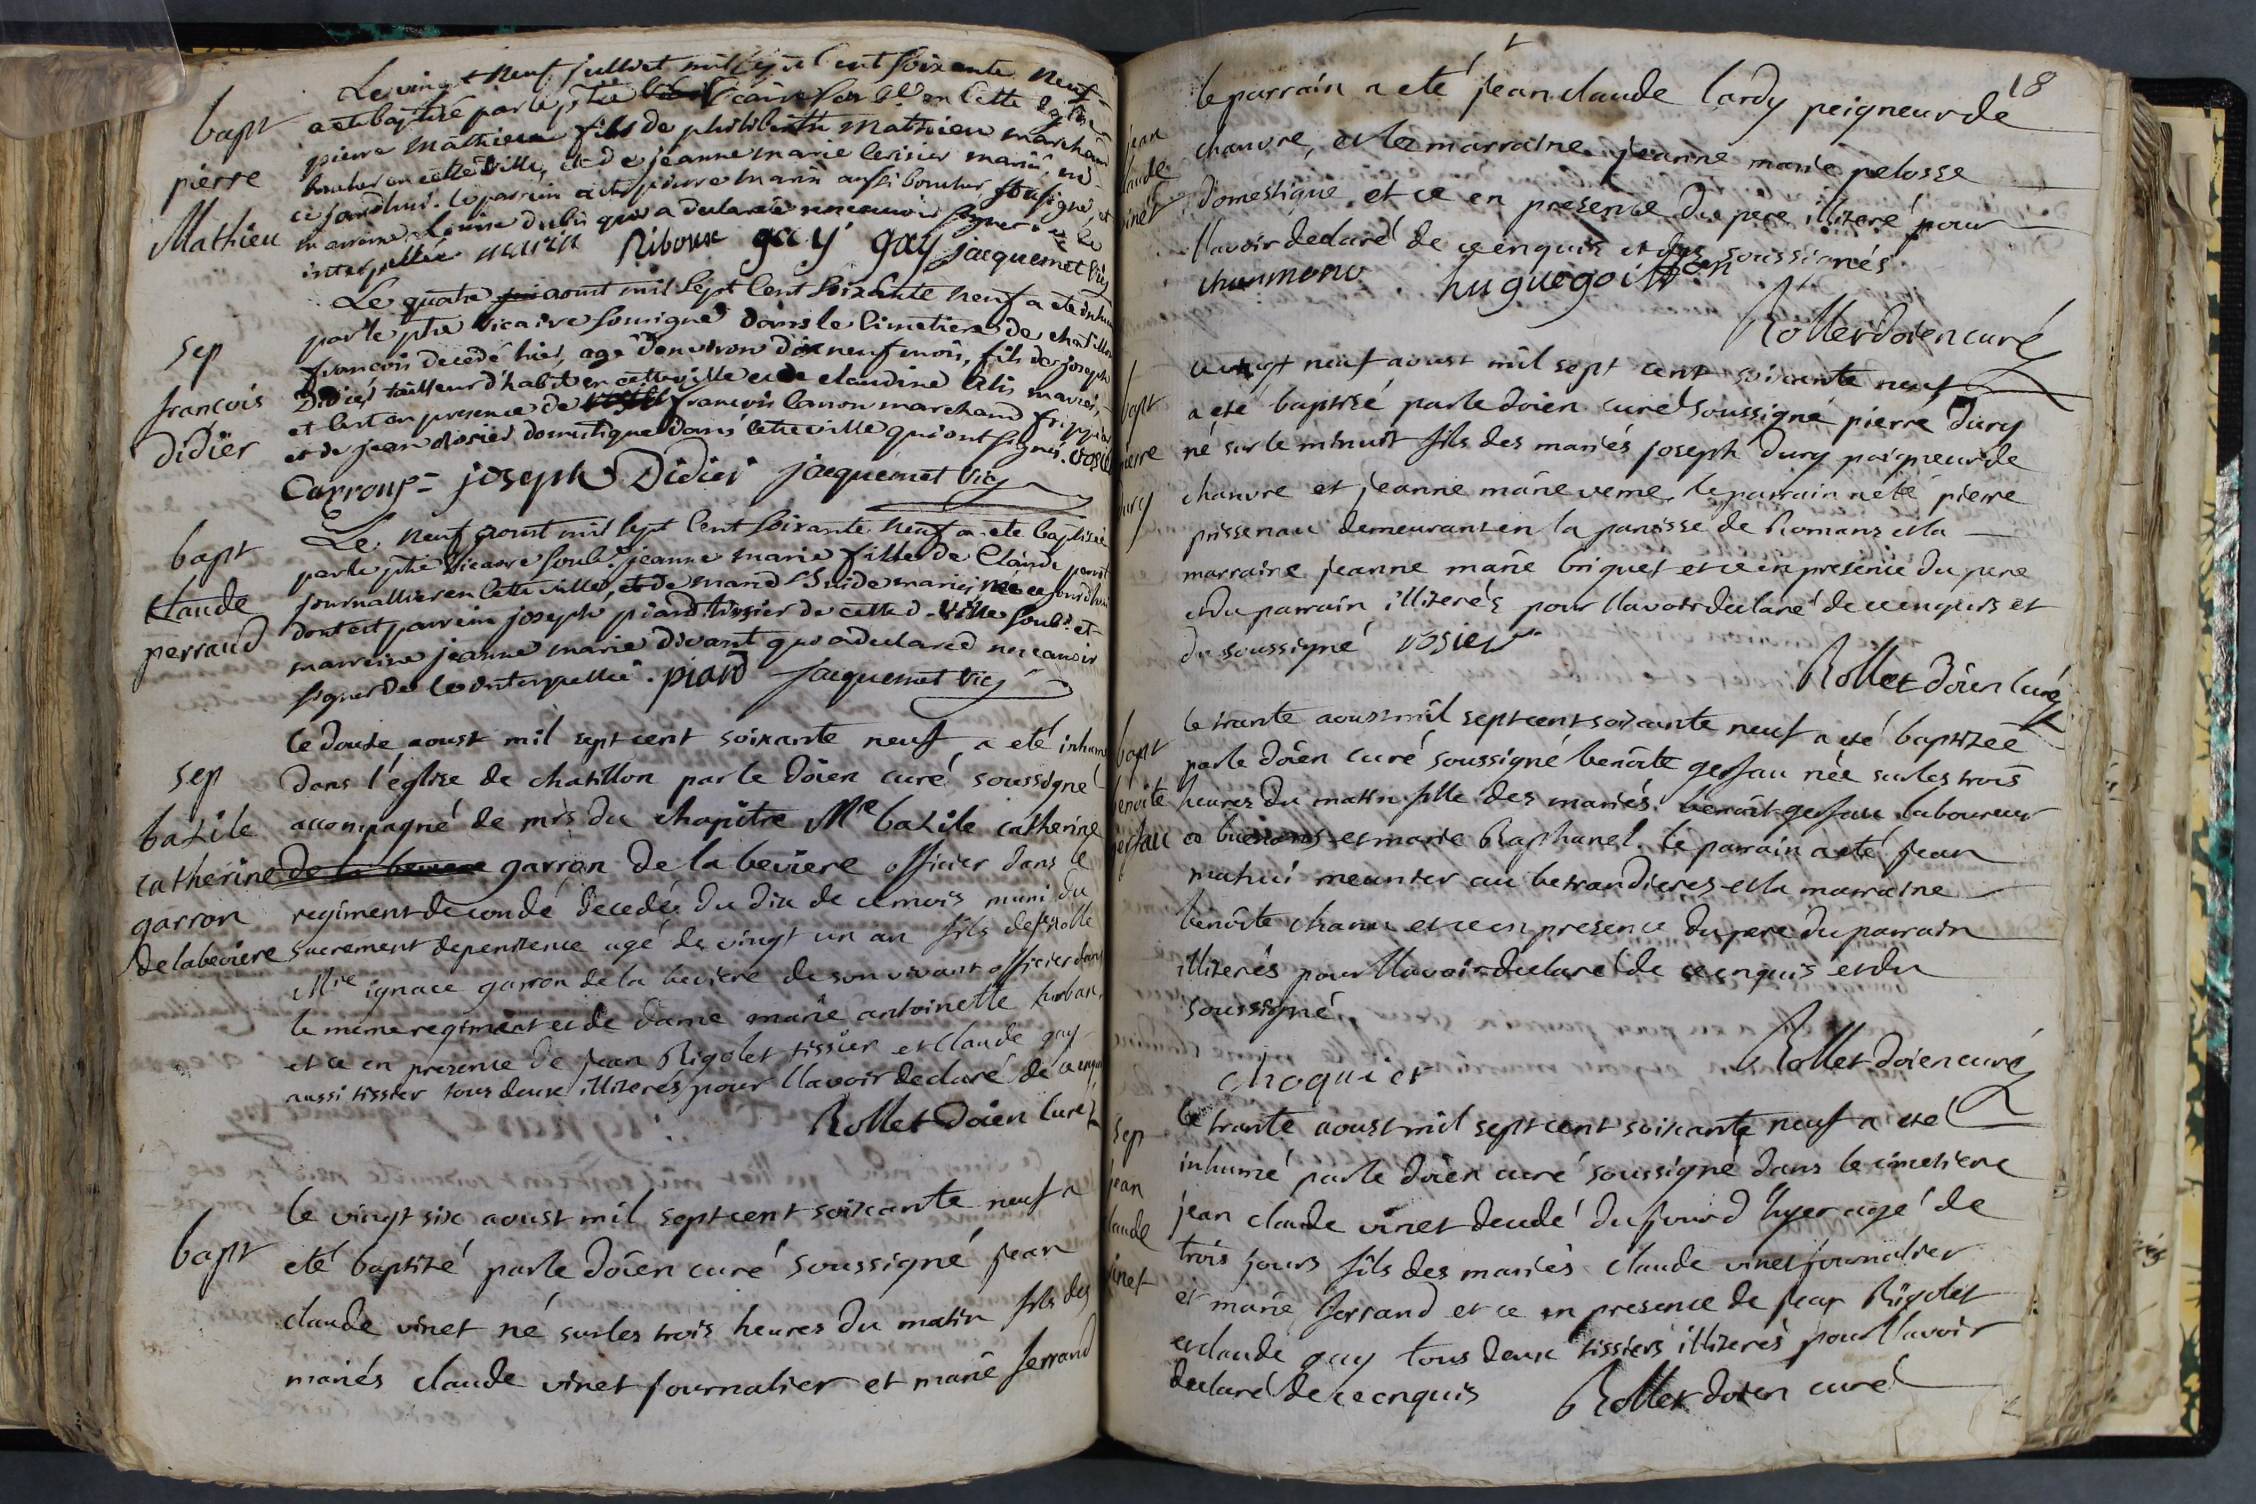 Le vingt neuf juillet mil sept cent soixante neuf
a ete baptisé par le ptre vicaire en cette eglise
bapt
pierre
Mathieu
pierre Mathieu fils de philiberth Mathieu marchand
boucher en cette ville, et de jeanne marie cerisier mariés, né
ce jourdhui. le parrain a ete pierre marin aussi boucher sousigné, et
marraine Louise dubis qui a declarée ne scavoir signer. de ce
interpellée marin Riboux gay gay jacquemet vic
sep
françois
didier
Le quatre aout mil sept cent soixante neuf a ete inhumé
par le ptre vicaire sousigné dans le cimetiere de chatillon
francois decedé hier, agé denviron dix neuf mois, fils de joseph
Didier tailleur d'habit en cette ville et de claudine mariés,
et c'est en presence de françois carron marchand frippier
et de jean rosier domestique dans cette ville qui ont signés. rosier
Carrouf joseph Didier jacquemet vic
bapt
Claude
perraud
Le neuf aout mil sept cent soixante neuf a ete baptisée
par le ptre vicaire soub. jeanne marie fille de Claude
journallier en cette ville, et de marie mariés née ce jourdhui
dont est parrein joseph piard tissier de cette d. ville soub. et
marreine jeanne marie divant qui a declareé ne scavoir
signer de ce interpellée. piard Jacquemet vic
sep
bazile
catherine
garron
de la beviere
Le douze aoust mil sept cent soixante neuf a eté inhumé
dans l'église de chatillon par le doien curé soussigné
accompagné de mrs du chapitre Mre bazile catherine
de la beviere garron de la beviere officier dans le
regiment de condé decedé du dix de ce mois muni du
sacrement de penitence agé de vingt un an fils de
Mre ignace garron de la beviere de son vivant officier dans
le meme regiment et de dame marie antoinette
et ce en presence de jean Rigolet tissier et claude gay
aussi tissier tous deux illiterés pour l'avoir declaré de ce enquis
Rollet doien curé
bapt
le vingt six aoust mil sept cent soixante neuf a
eté baptizé par le doien curé soussigné jean
claude vinet né sur les trois heures du matin fils des
mariés claude vinet journalier et marie ferrand
18
jean
laude
vinet
le parrain a eté jean claude lardy peigneur de
chanvre, et la marraine jeanne marie pelosse
domestique et ce en presence du pere illiteré pour
l'avoir declaré de ce enquis et des soussignés
chanmono huguegoitton
Rollet doien curé
bapt
pierre
dury
le vingt neuf aoust mil sept cent soixante neuf
a eté baptisé par le doien curé soussigné pierre dury
né sur le minuit fils des mariés joseph dury peigneur de
chanvre et jeanne marie verne. le parrain a eté pierre
pissenau demeurant en la paroisse de Romans et la
marraine jeanne marie briquet et ce en presence du pere
et du parrain illiterés pour l'avoir declaré de ce enquis et
du soussigné rosier
Rollet doien curé
bapt
benoite
gersau
le trante aoust mil sept cent soixante neuf a eté baptizée
par le doien curé soussigné benoîte gersau née sur les trois
heures du matin fille des mariés benoit gersau laboureur
et marie Raphanel. le parrain a eté jean
mathui meunier au et la marraine
benoîte chanu et ce en presence du pere du parrain
illiterés pour l'avoir declaré de ce enquis et du
soussigné
Rollet doien curé
choquier
sep
jean
laude
vinet
le trante aoust mil sept cent soixante neuf a eté
inhumé par le doien curé soussigné dans le cimetiere
jean claude vinet decedé du jour d'hyer agé de
trois jours fils des mariés claude vinet journalier
et marie ferrand et ce en presence de jean Rigolet
et claude gay tous deux tissiers illiterés pour l'avoir
declaré de ce enquis Rollet doien curé